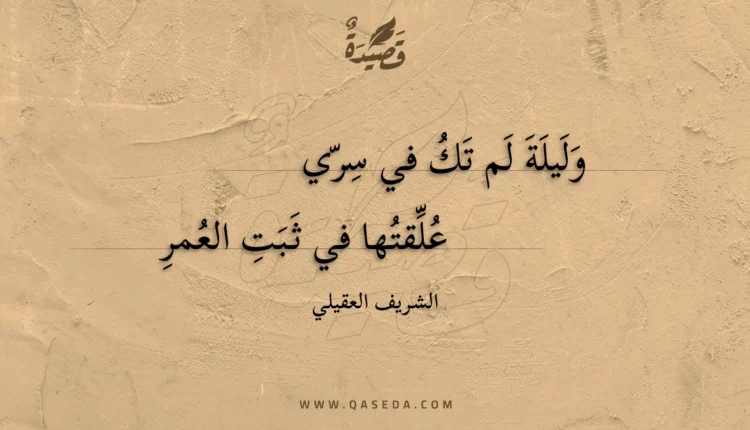 قَصِيدَةٌ
وَلَيلَةَ لَم تَكُ في سِرّي
عُلِّقتُها في ثَبَتِ العُمرِ
الشريف العقيلي
WWW.QASEDA.COM